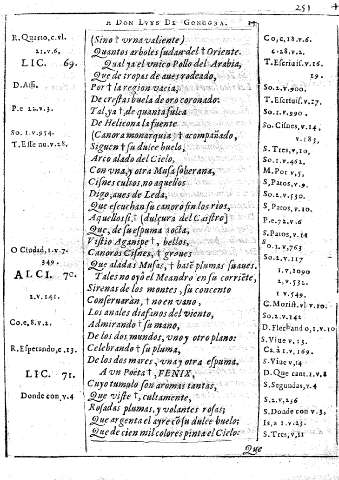 251
A DON LUYS DE GONGORA.
R. Quieto, c. vl. (Sino † vrna valiente) Co, e, 18. v. 6.
21. v. 6. Quantos arboles sudan del † Oriente. c. 28. v. 2.
LIC. 69. Qual ya el vnico Pollo del Arabia, T. Escriuis v. 16.
Que de tropas de aues rodeado, 19.
D. Ass. Por † la region vacia, So. 2. v. 900.
De crestas buela de oro coronado: T. Escriuis, v. 17.
P. e 22. v. 3. Tal, ya †, de quanta sulca So. 1. v. 990.
De Helicona la fuente So. Cisnes, v. 14,
So. 1. v. 954. (Canora monarquia † acompañado, v. 185,
T. Este no v. 18. Siguen † su dulce buelo, S. Tres, v, 10,
Arco alado del Cielo, So. 1. v. 462,
Con vna, y otra Musa soberana, M. Por v 5,
Cisnes cultos, no aquellos S, Patos, v. 9.
Digo, aues de Leda, So. 2. v. 530.
Que escuchan su canoro son los rios, S, Patos, v. 10.
Aquellos si † (dulçura del Caistro) P. e 72. v. 6
Que, de su espuma rocta, S. Patos, v. 14
Vistio Aganipe †, bellos, So. 1. v, 763
O Ciudad, 1. v. 7. Canoros Cisnes, † graues So. 2. v. 117
349. Que aladas Musas, † batē plumas suaues. 1. v, 1090
ALCI. 70. Tales no oyò el Meandro en su corriēte, 2. v. 532.
Sirenas de los montes, su concento 1. v. 549.
2. v. 141. Conseruaràn, † no en vano, C. Morist. vl v. 10.
Los anales diafanos del viento, So. 2. v. 142
Co, e, 8. v. 2. Admirando † su mano, D. Flechando, 1. v. 10
De los dos mundos, vno y otro plano: S. Viue v. 13.
R. Esperando, c, 13. Celebrando † su pluma, Ca. 1. v, 169.
De los dos mares, vna y otra espuma. S. Viue, v. 14
LIC. 71. A vn Poeta †, FENIX, D. Que cant. 1. v. 8
Cuyo templo son aromas tantas, S, Segundas, v. 4
Donde con v. 4 Que viste †, cultamente, S. 2. v, 256
Rosadas plumas, y volantes rosas; S. Donde con v. 3,
Que argenta el ayre cō su dulce buelo; Is, a 1. v 23.
Que de cien mil colores pinta el Cielo: S. Tres, v, 11
Que